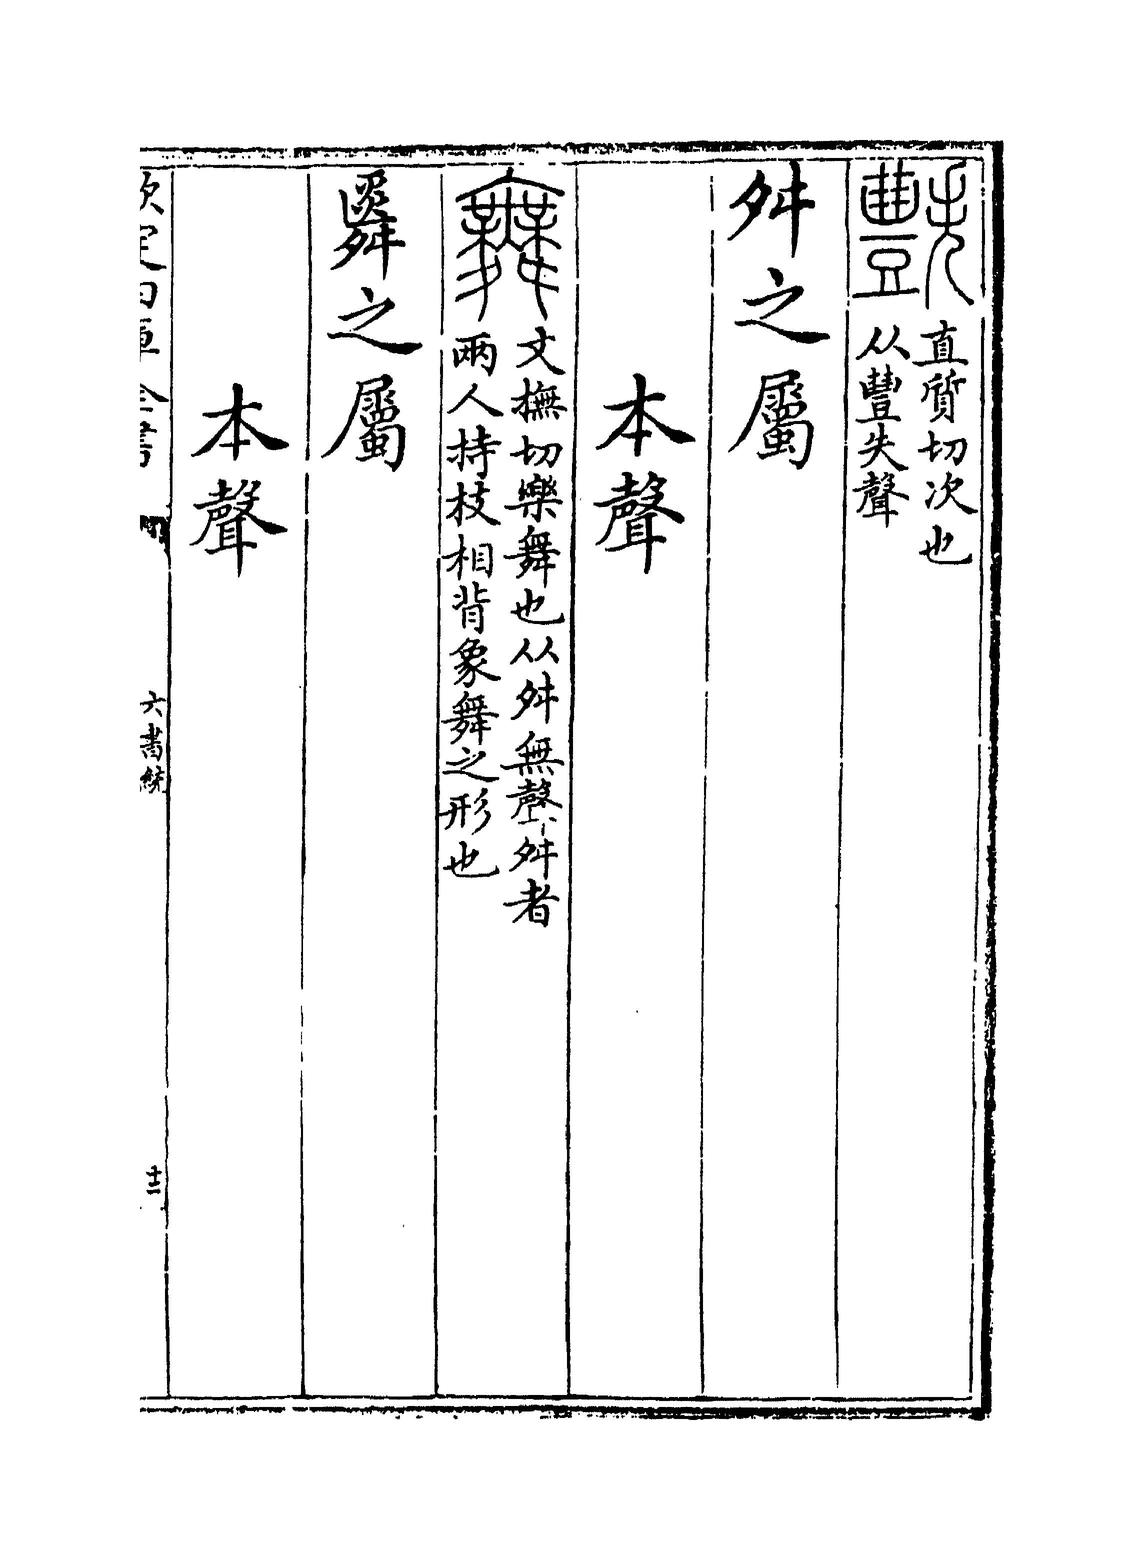 豒
直質切次也
从豊失聲
舛之屬
本聲
舞
文撫切樂舞也从舛無聲舛者
兩人持枝相背象舞之形也
䑞之屬
本聲
欽定四庫全書
六書統
十二